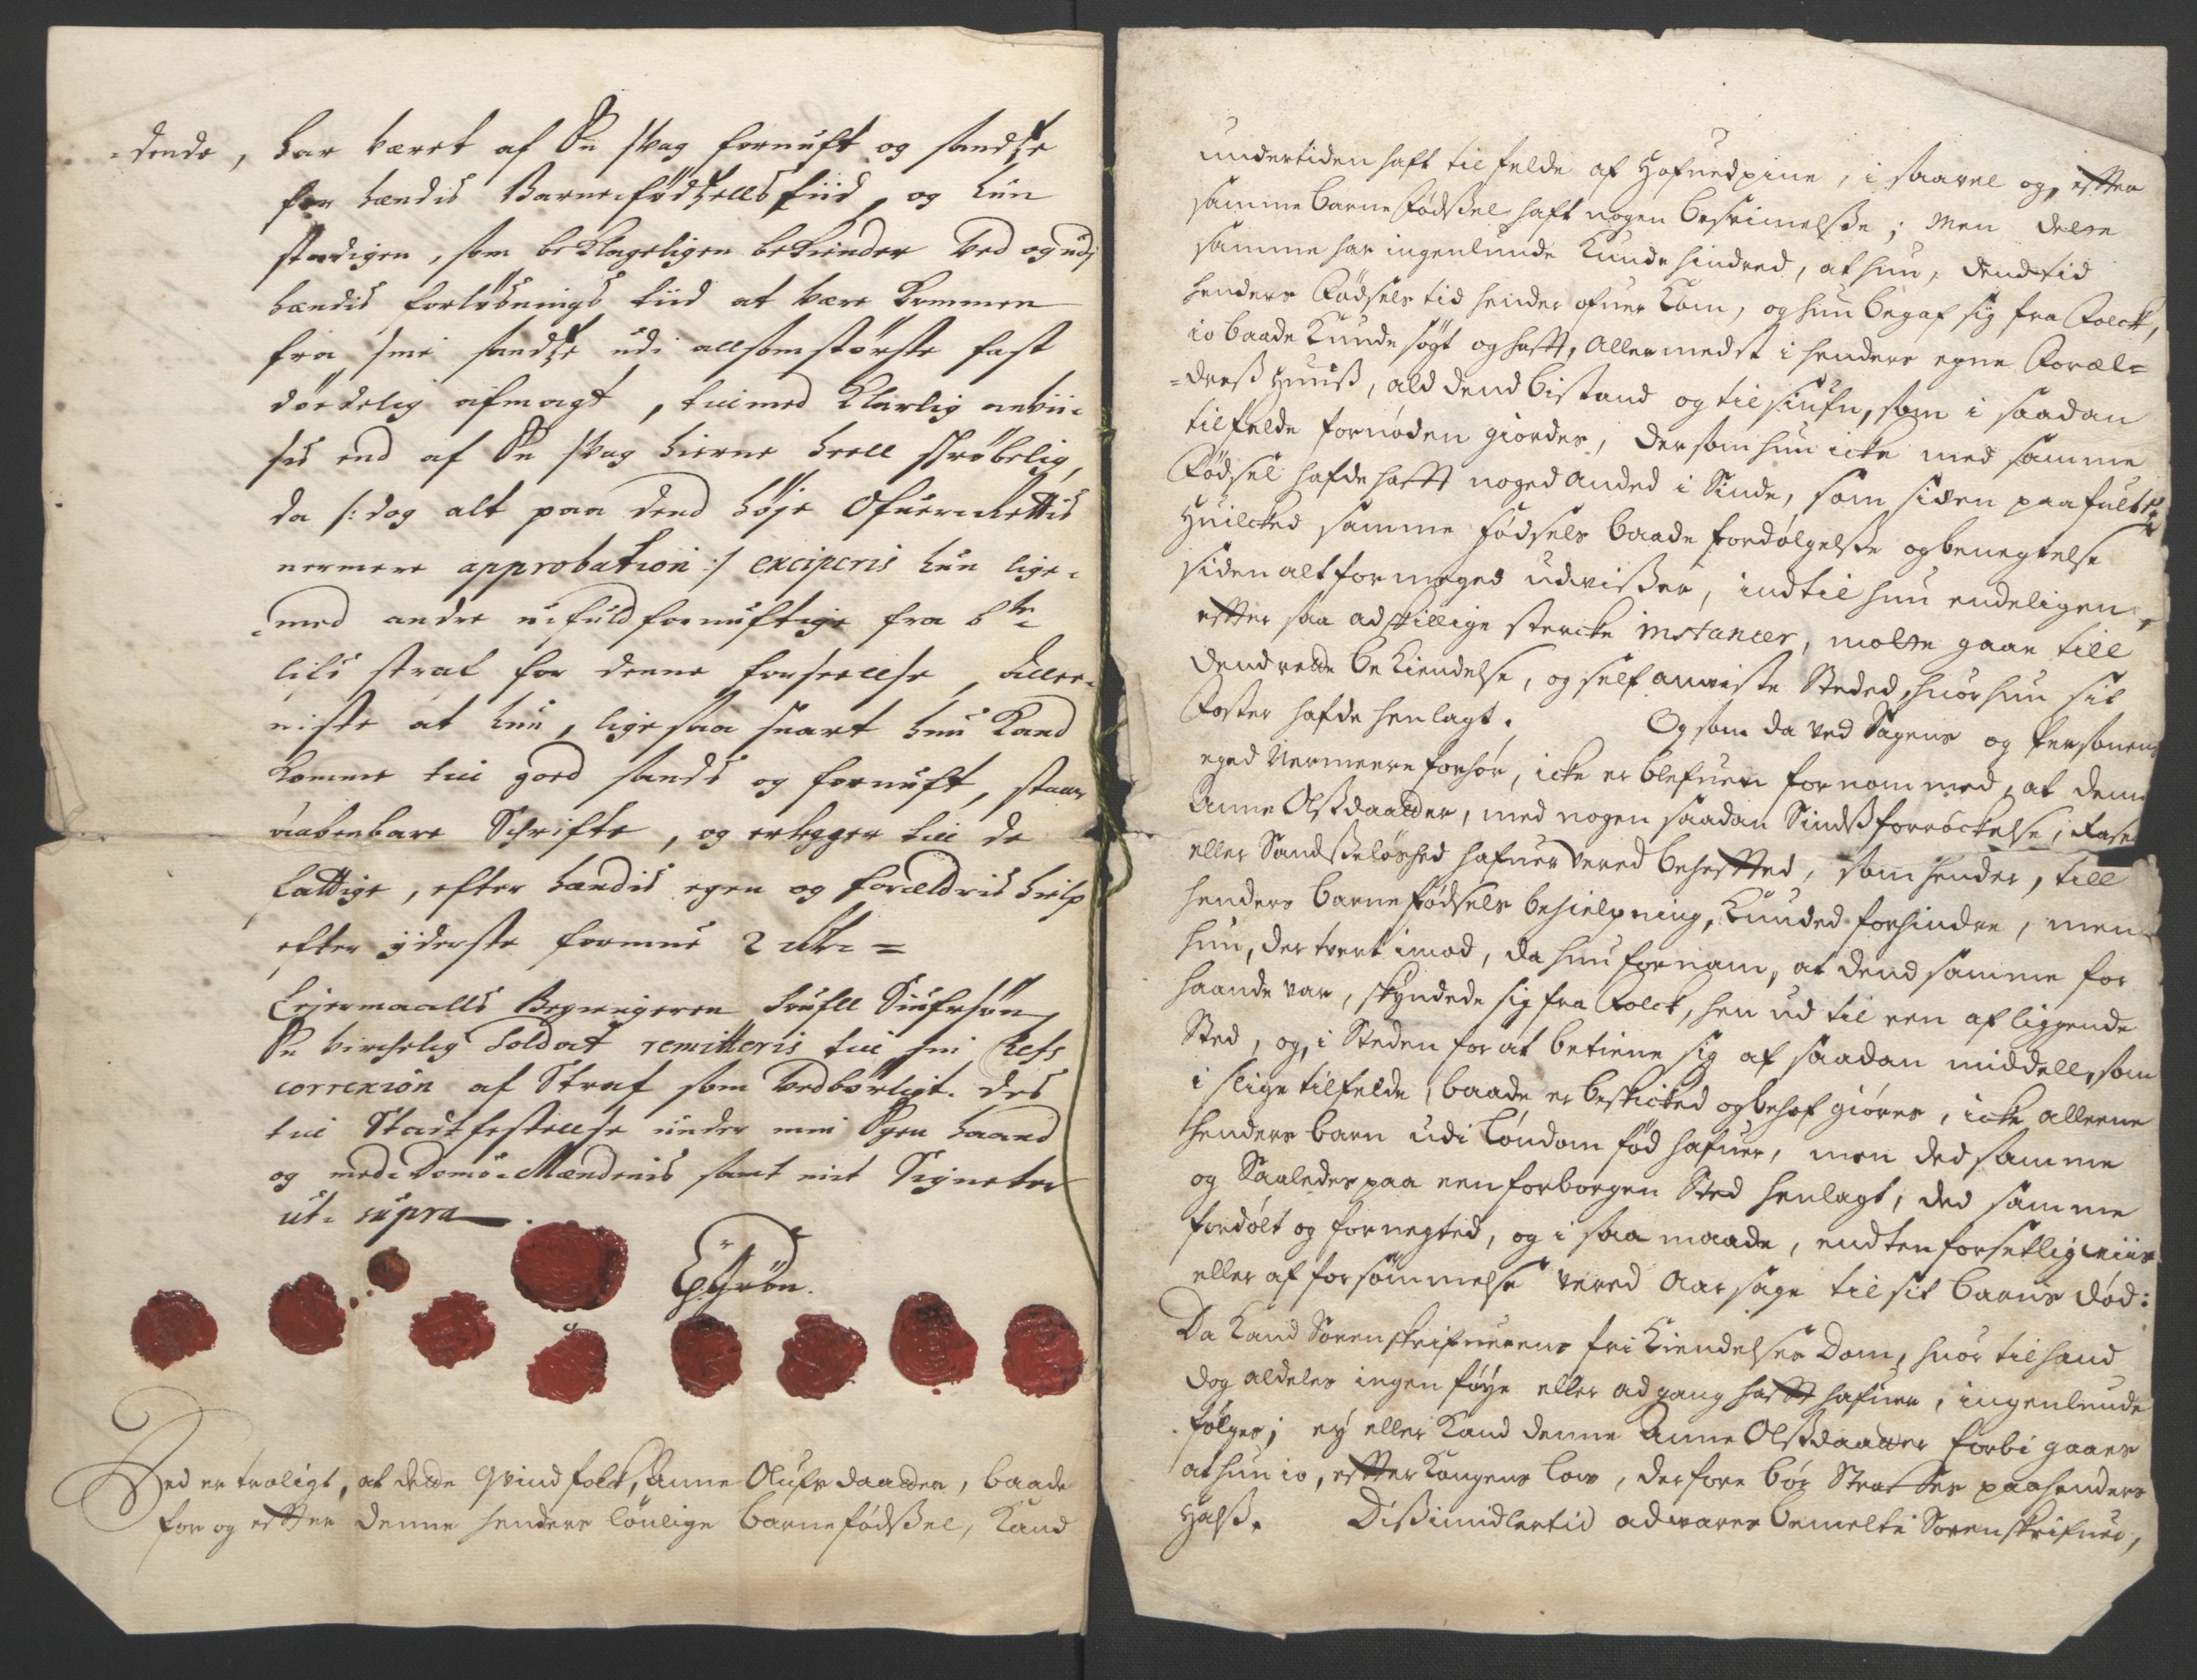 -dende, har været af En svag fornuft og sandse
for hendis Barnefødsells tiid, og hun
stædigen, som beklageligen bekiender Ved og udj
hendis forløsnings tiid at være kommen
fra sine sandse udi allsomstørste fast
dødelig afmagt, tillmed klarlig anvii-
sis end af En svag hierne heell skrøbelig,
da /: dog alt paa dend høje Ofuer-Rettis
nermere approbation :/ exciperis hun lige-
med andre u-fuldfornuftige fra
lifs straf for denne forseellse, allee-
niste at hun, lige saa snart hun kand
komme till goed sands og fornuft, staar
aabenbare Schrifte, og erlegger till de
fattige, efter hendis egen og forældris hielp
efter yderste formue 2
Lejermaalls Begaugeren Siufrsøn,
En virchelig Soldat remitteris till sin Chefs
correxion af Straf som Vedbørligt. des
till Stadfestellse under min Egen haand
og med-Doms-Mændenis samt mit Signeter
ut- supra
Ded er troeligt, at dette Qvindfolck, Anne Olufsdaatter, baade
for og efter denne henders lønlige barnefødsel, kand
undertiden haft tilfelde af Hofuedpine, i saavel og, efter
samme barnefødsel, haft nogen besvimelse; Men dette
samme har ingenlunde kunde hindred, at hun, dend tid
henders Fødsels tid hender ofuer kom, og hun begaf sig fra Folck,
io baade kunde søgt og hafft, allermedst i henders egne Foræl-
-dress Huuss, ald dend bistand og tilsiufn, som i saadan
tilfelde fornøden giordes, dersom hun icke med samme
Fødsel hafde hafft noged anded i Sinde, som siden paafulte,
Huilcked samme fødsels baade fordølgelse og benegtelse
siden altformeged udviser, indtil hun endeligen,
efter saa adskillige stercke instancer, motte gaae till
dend rette bekiendelse, og self anviste Steded, huor hun sit
Foster hafde henlagt. Og som da ved Sagens og Personens
eged Nermeere forhør, icke er blefuen fornommed, at denne
Anne Olssdaatter, med nogen saadan Sindssforrøckelse,
eller Sandsseløshed hafuer vered behefted, som hender, till
henders barnefødsels behielpning, kunded forhindre, men
hun, der tvert imod, da hun fornam, at dend samme for
haande var, skyndede sig fra Folck, hen ud til een afliggende
Sted, og, i Steden for at betiene sig af saadan middell, som
i slige tilfelde, baade er beskicked og behof giøres, icke alleene
henders barn udi Løndom fød hafuer, men ded samme
og Saaledes paa een forborgen Sted henlagt, ded samme
fordølt og fornegted, og i saa maade, endten forsetligviis
eller af forsømmelse vered aarsage til sit barns død:
Da kand Sorenskrifuerens frikiendelses Dom, huor til hand
dog aldeles ingen føye eller adgang hafft hafuer, ingenlunde
følges; ey eller kand denne Anne Olssdaatter forbi gaaes
at hun io, efter Kongens Lov, derfore bør Straffes paa henders
Halss. Dissimidlertid advares bemelte Sorenskrifuer,